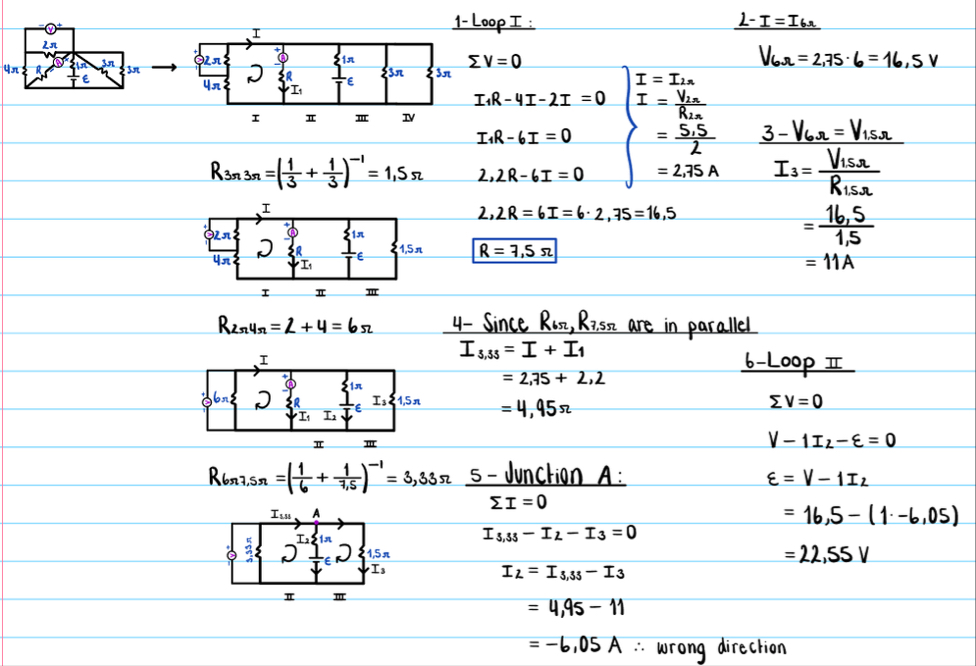 V
2Ω
4Ω
R
A
1Ω
E
3Ω
3Ω
I
2Ω
4Ω
A
R
I₁
1Ω
E
3Ω
3Ω
I II III IV
R3Ω3Ω = (1/3 + 1/3)⁻¹ = 1,5Ω
I
2Ω
4Ω
A
R
I₁
1Ω
E
1,5Ω
I II III
R2Ω4Ω = 2 + 4 = 6Ω
I
6Ω
A
R
I₁
1Ω
E
I₂
I₃
1,5Ω
II III
R6Ω7,5Ω = (1/6 + 1/7,5)⁻¹ = 3,33Ω
I3,33
A
3,33Ω
I₂
1Ω
E
1,5Ω
I₃
II III
1-Loop I:
ΣV=0
I₁R-4I-2I =0
I₁R-6I=0
2,2R-6I=0
2,2R=6I=6·2,75=16,5
R=7,5Ω
I = I2Ω
I = V2Ω/R2Ω
= 5,5/2
= 2,75 A
2-I=I6Ω
V6Ω=2,75·6=16,5 V
3-V6Ω=V1,5Ω
I₃= V1,5Ω/R1,5Ω
= 16,5/1,5
= 11A
4- Since R6Ω, R7,5Ω are in parallel
I3,33 = I + I₁
= 2,75 + 2,2
= 4,95Ω
5- Junction A:
ΣI=0
I3,33-I₂-I₃=0
I₂ = I3,33-I₃
= 4,95-11
= -6,05 A ∴ wrong direction
6-Loop II
ΣV=0
V-1I₂-ε=0
ε=V-1I₂
= 16,5-(1·-6,05)
=22,55 V